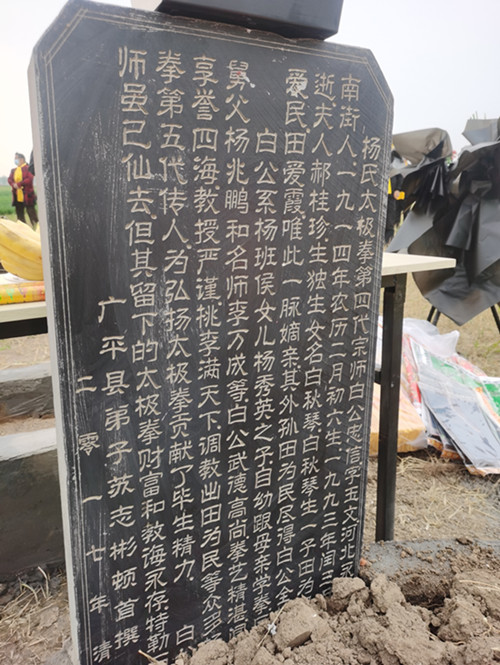 杨氏太极拳第四代宗师白公忠信字玉文河北永
南街人一九一四年农历二月初六生一九九三年闰三
逝夫人郝桂珍生独生女名白秋琴白秋琴生一子田为
爱民田爱霞唯此一脉嫡亲其外孙田为民尽得白公全
白公系杨班侯女儿杨秀英之子自幼跟母亲学拳
舅父杨兆鹏和名师李万成等白公武德高尚拳艺精湛
享誉四海教授严谨桃李满天下调教出田为民等众多
拳第五代传人为弘扬太极拳贡献了毕生精力 白公
师虽已仙去但其留下的太极拳财富和教诲永存特勒
广平县弟子苏志彬顿首撰
二零一七年清